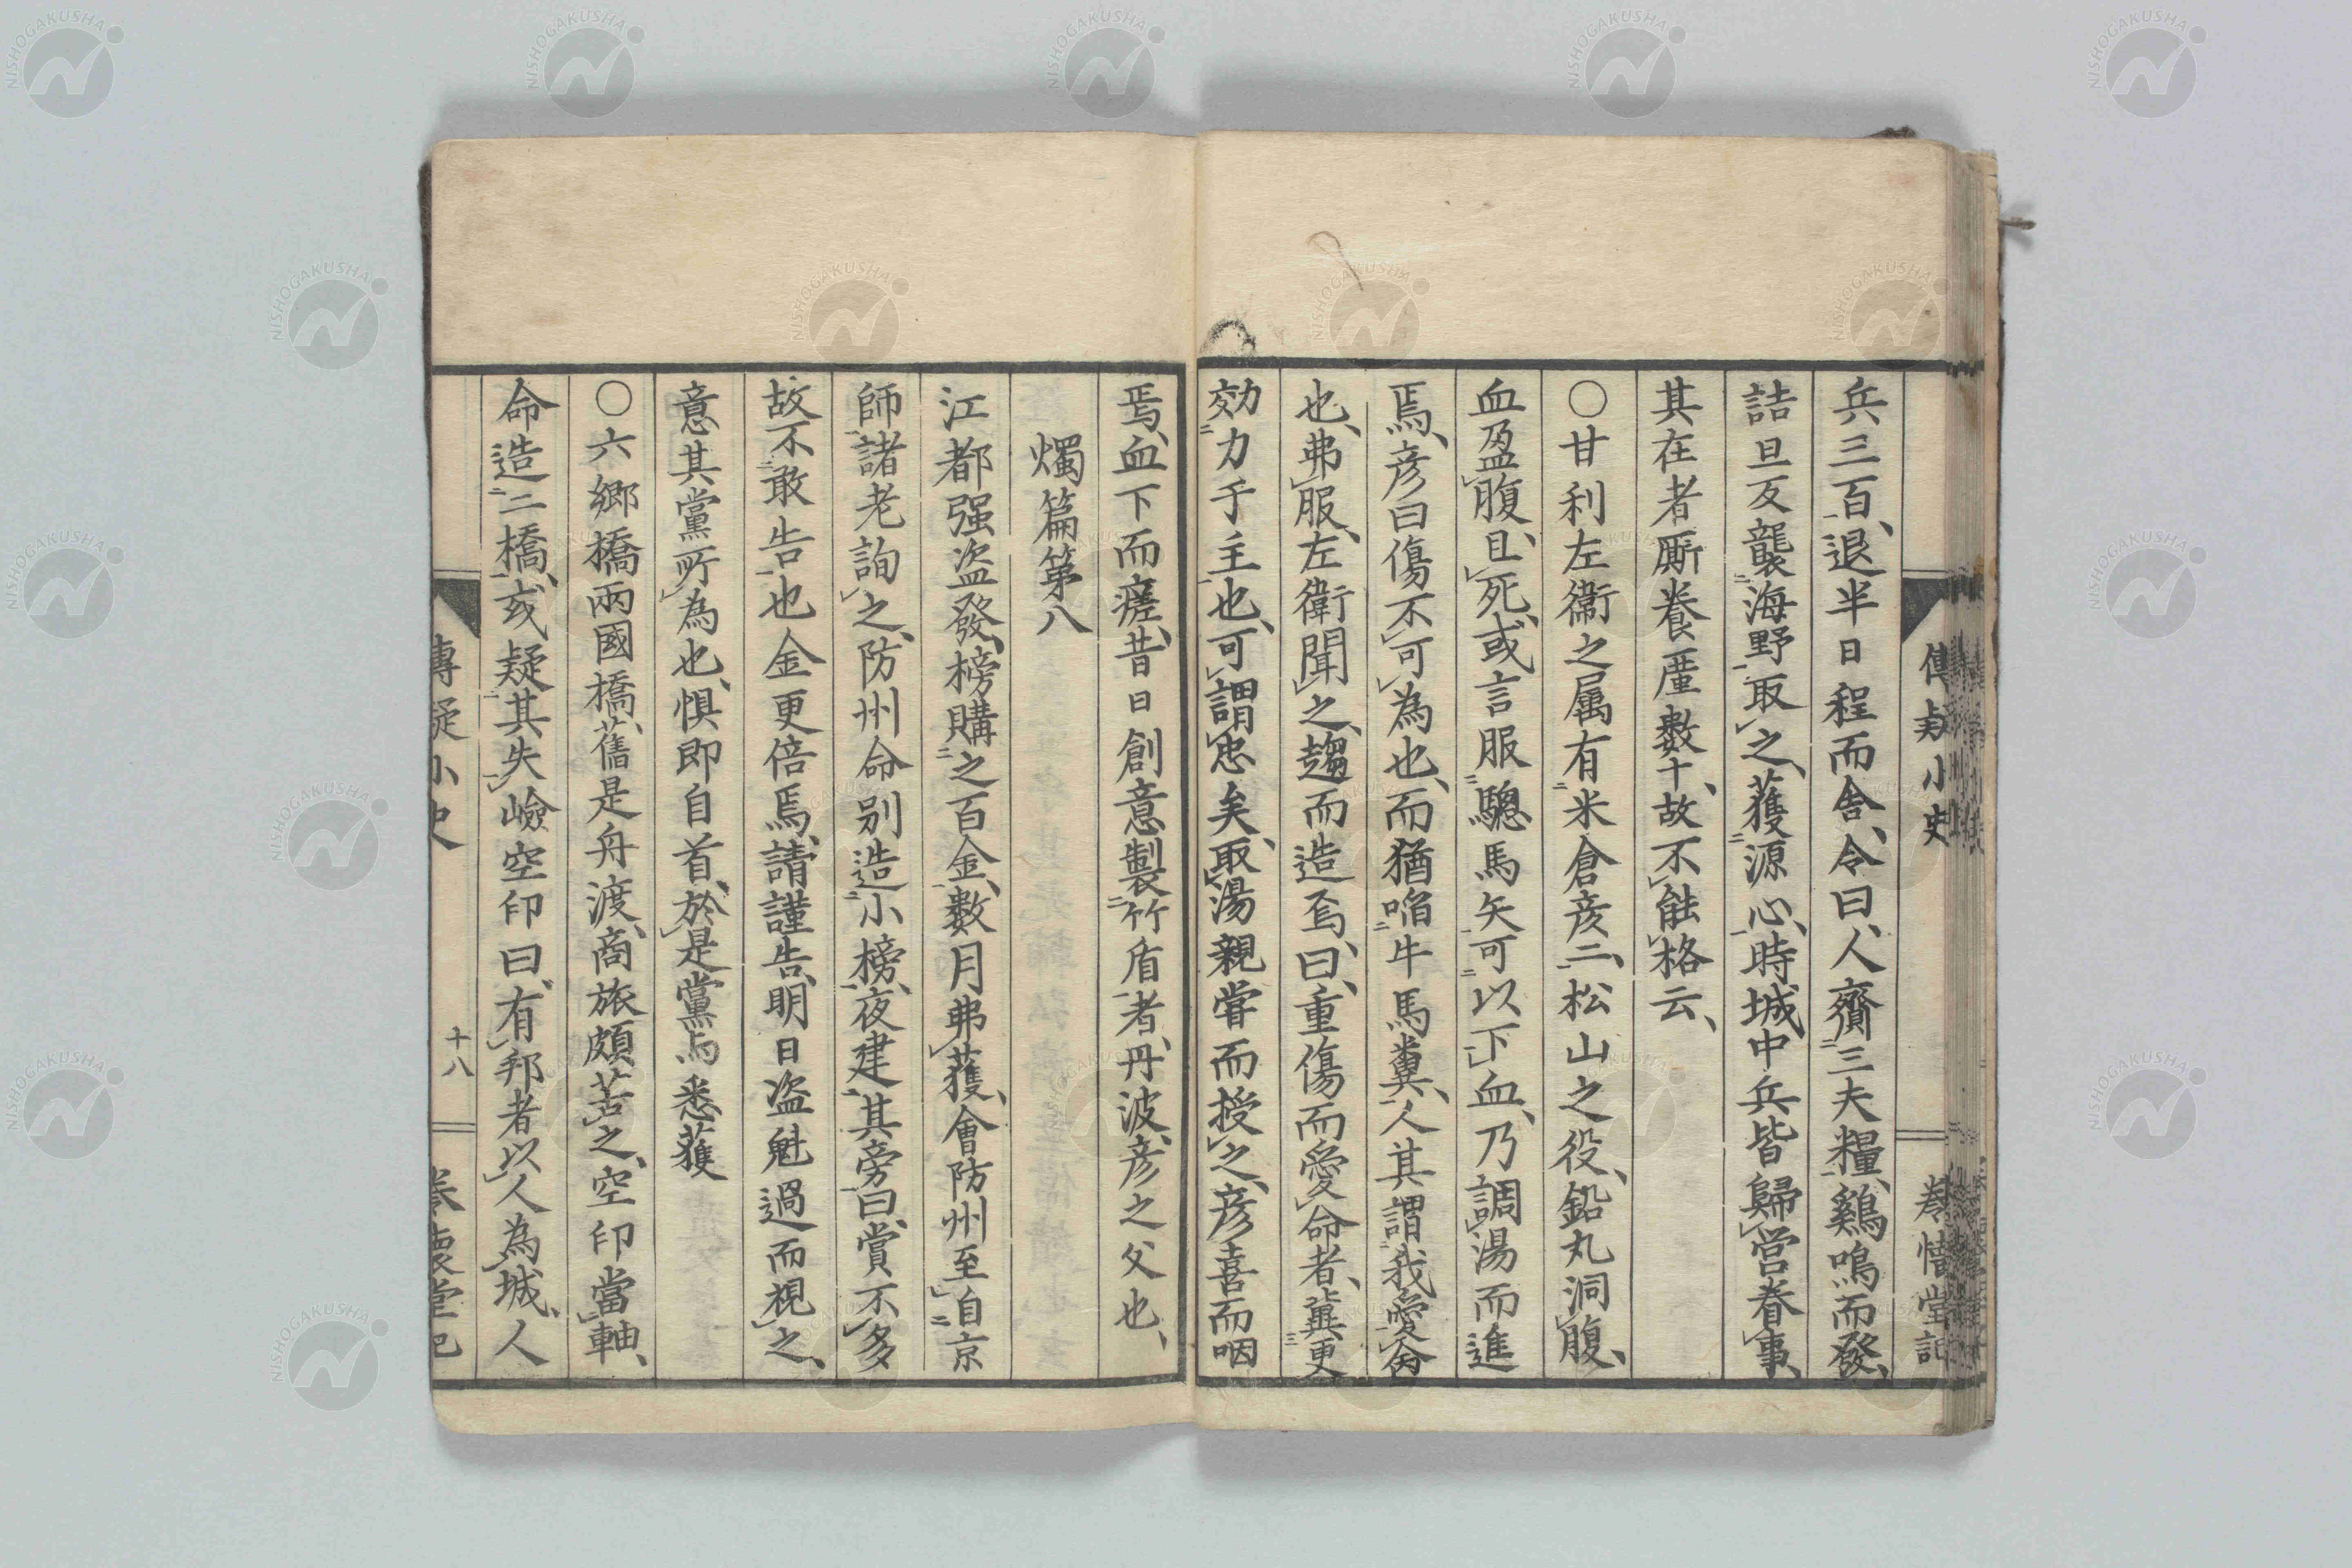 兵三百、退半日程而舎、令曰、人齎三夫糧、鷄鳴而發、
詰旦亙襲海野取之、獲源心、時城中兵皆歸営眷事、
其在者厮養廛數十、故不能格云、
〇甘利左衞之属有米倉彦二、松山之役、鉛丸洞腹、
血盈腹、且死、或言服驄馬矢可以下血、乃調湯而進
焉、彦曰傷不可為也、而猶啗牛馬糞、人其謂我愛命
也、弗服、左衛聞之、趨而造焉、曰、重傷而愛命者、冀更
効力于主也、可謂忠矣、取湯親嘗而授之、彦喜而咽
焉、血下而瘥、昔日創意製竹盾者、丹波、彦之父也、
燭篇第八
江都强盗發、榜購之百金、數月弗獲、會防州至自京
師、諸老詢之、防州命別造小榜、夜建其旁曰、賞不多
故不敢告也、金更倍焉、請謹告、明日盗魁過而視之、
意其黨所為也、惧即自首、於是黨与悉獲
〇六郷橋兩國橋、舊是舟渡、商旅頗苦之、空印當軸、
命造二橋、或疑其失嶮、空印曰、有邦者以人為城、人
傳疑小史
十八